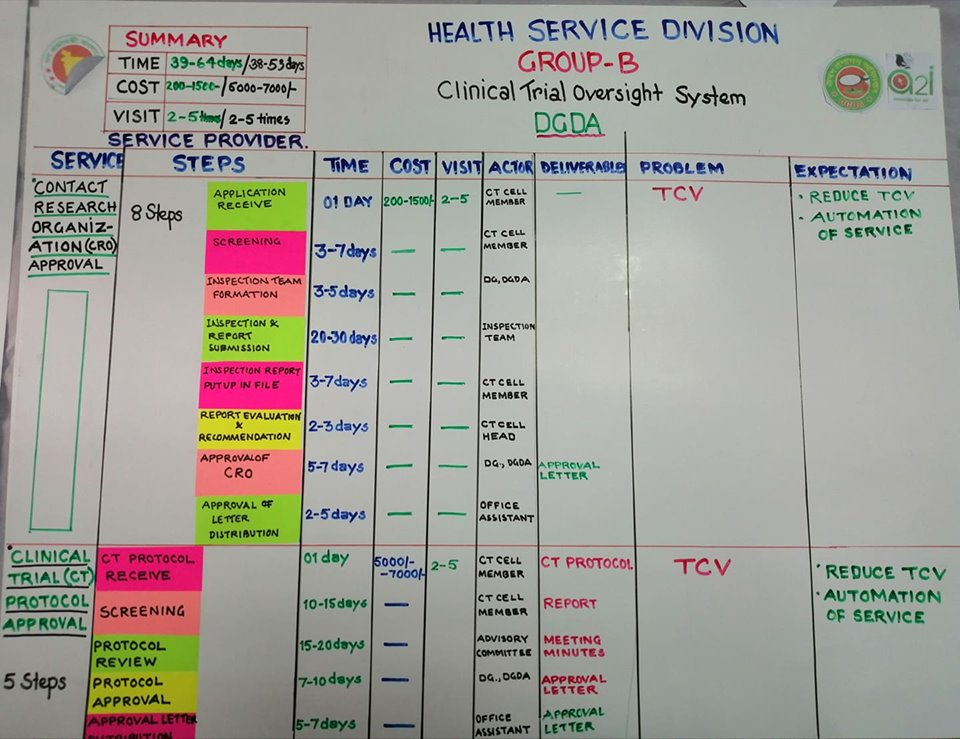 HEALTH SERVICE DIVISION
GROUP-B
Clinical Trial Oversight System
DGDA
SUMMARY
TIME 39-64days/38-53days
COST 200-1500-/5000-7000/-
VISIT 2-5times/2-5 times
a2i
SERVICE PROVIDER.
SERVICE STEPS TIME COST VISIT ACTOR DELIVERABLES PROBLEM EXPECTATION
CONTACT
RESEARCH
ORGANIZ-
ATION(CRO)
APPROVAL
8 Steps
APPLICATION
RECEIVE
01 DAY 200-1500/- 2-5
CT CELL
MEMBER
—
TCV
• REDUCE TCV
• AUTOMATION
OF SERVICE
SCREENING
3-7days — —
CT CELL
MEMBER
INSPECTION TEAM
FORMATION
3-5days — —
DG, DGDA
INSPECTION &
REPORT
SUBMISSION
20-30days — —
INSPECTION
TEAM
INSPECTION REPORT
PUTUP IN FILE
3-7days — —
CT CELL
MEMBER
REPORT EVALUATION
&
RECOMMENDATION
2-3days — —
CT CELL
HEAD
APPROVAL OF
CRO
5-7days — —
DG., DGDA
APPROVAL
LETTER
APPROVAL OF
LETTER
DISTRIBUTION
2-5days — —
OFFICE
ASSISTANT
• CLINICAL
TRIAL (CT)
PROTOCOL
APPROVAL
5 Steps
CT PROTOCOL
RECEIVE
01 day
5000/-
-7000/-
2-5
CT CELL
MEMBER
CT PROTOCOL
TCV
• REDUCE TCV
• AUTOMATION
OF SERVICE
SCREENING
10-15days —
CT CELL
MEMBER
REPORT
PROTOCOL
REVIEW
15-20days —
ADVISORY
COMMITTEE
MEETING
MINUTES
PROTOCOL
APPROVAL
7-10days —
DG., DGDA
APPROVAL
LETTER
APPROVAL LETTER
DISTRIBUTION
5-7days —
OFFICE
ASSISTANT
APPROVAL
LETTER